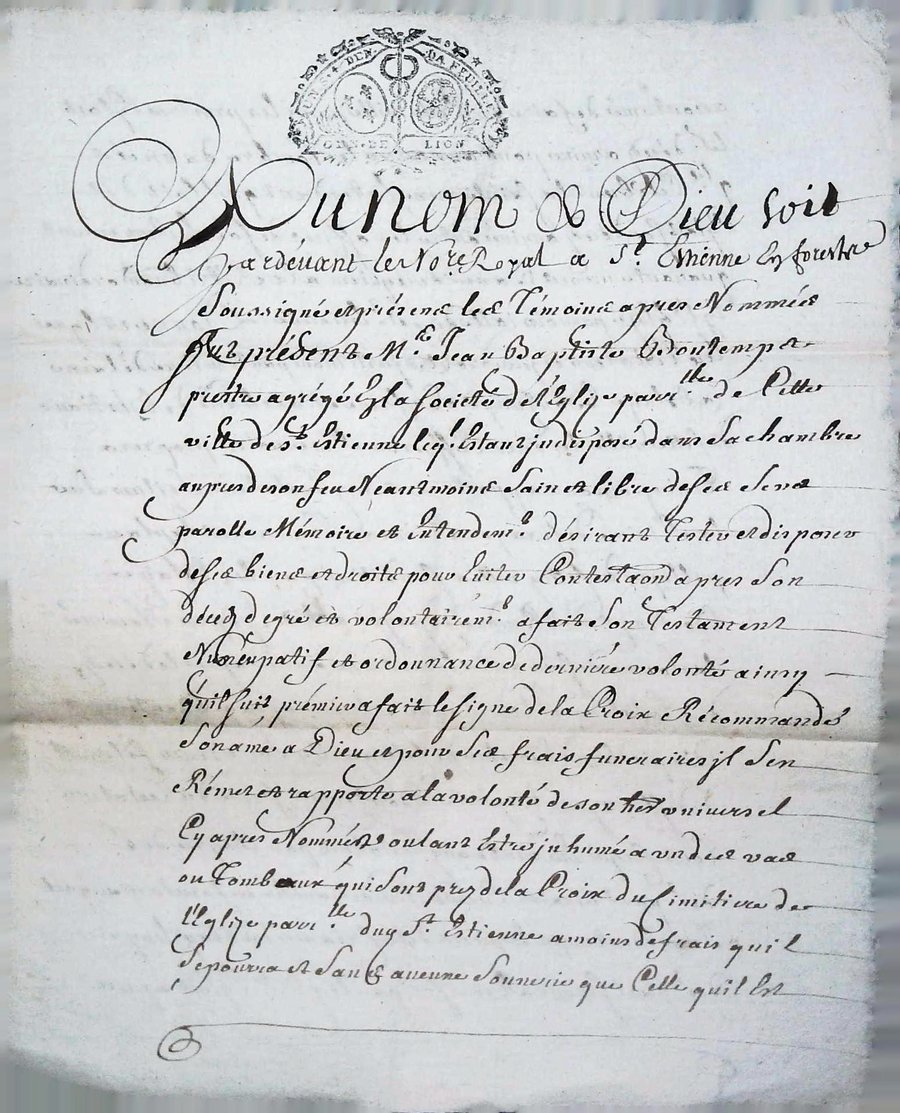 UN DEN LA FEUILLE
GEN DE LION
Au nom de Dieu soit
Pardevant le No.re Royal a S.t Etienne En forests
Soussigné et présens les Témoins apres Nommés
fut présent M.re Jean Baptiste Bontemps
prestre agrégé En la societé de l'Eglize parr.lle de Cette
ville de S.t Estienne leq.l Estant jndisposé dans Sa chambre
aupres de son feu Neantmoins Sain et libre de ses Sens
parolle Mémoire et Entendem.t désirant Tester et disposer
de ses biens et droits pour Eviter Contestaon apres Son
décez de gré et volontairem.t a fait Son Testament
Nuncupatif et ordonnance de derniére volonté ainsy
qu'il suit prémier a fait le signe de la Croix Récommandé
Son áme a Dieu et pour Ses frais funeraires jl S'en
Rémet et rapporte a la volonté de son her universel
Cy apres Nommé Voulant Estre jnhumé a un des vas
ou Tombeaux qui Sont prez de la Croix du Cimitiere de
l'Eglize parr.lle dud S.t Estienne a moins de frais qu'il
Se pourra et Sans aucune Sonnerie que Celle qu'il Est